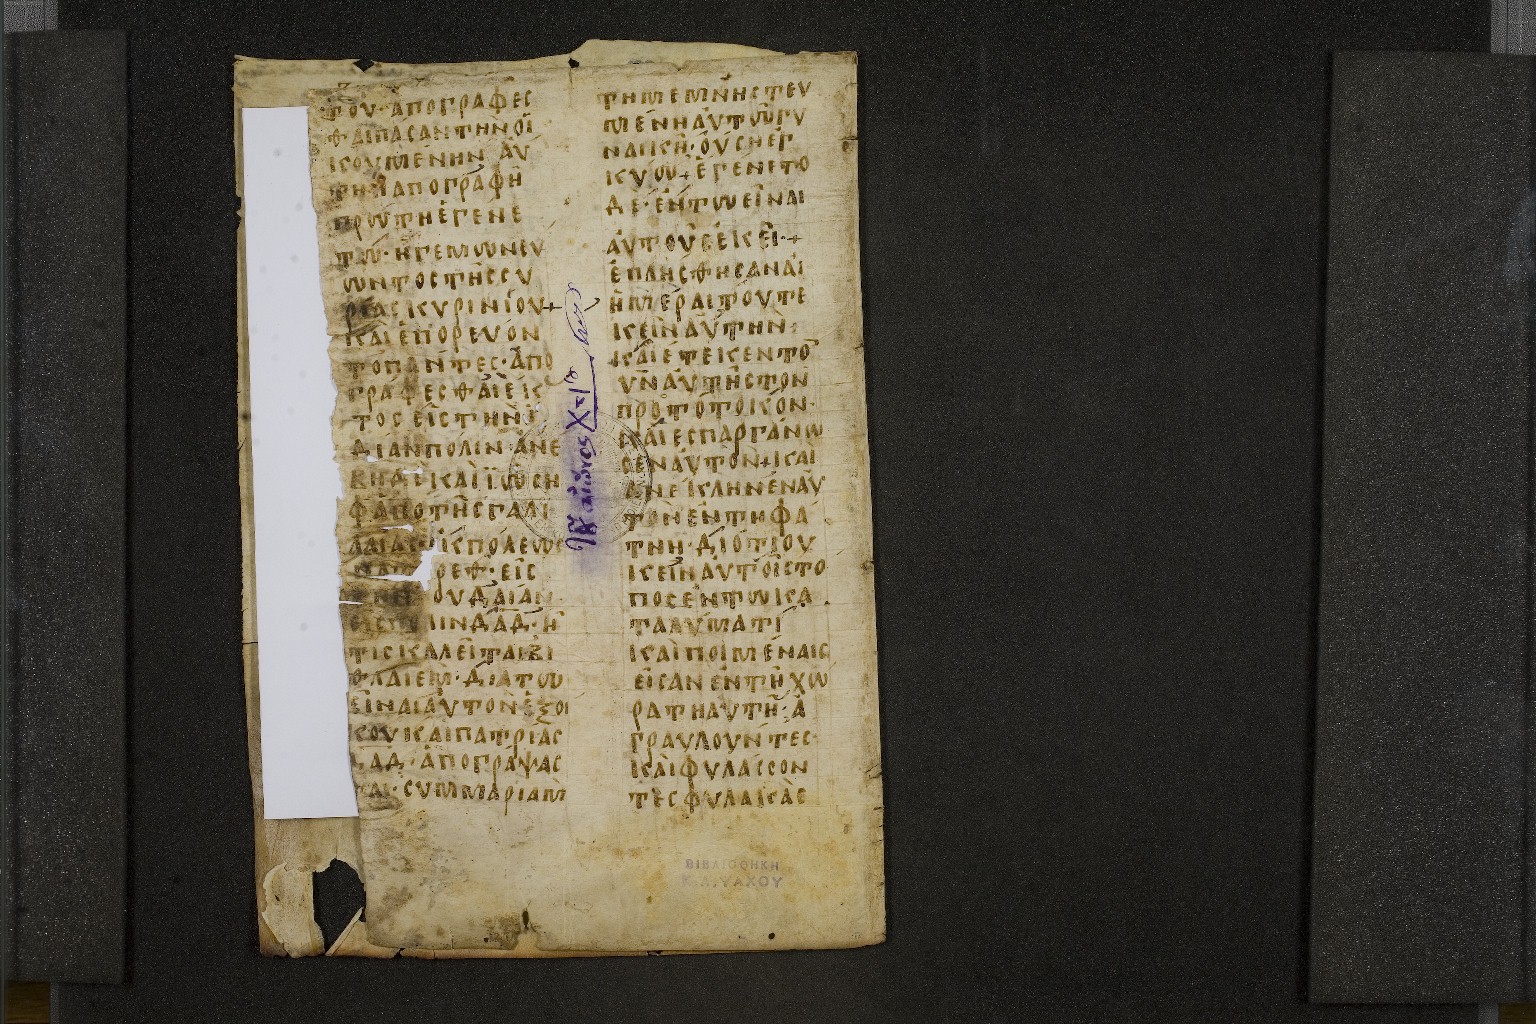 του· ἀπογραφεσ
θαι πασαν την οἰ
κουμένην αὑ
τη ἡ ἀπογραφὴ
πρωτη ἐγενε
το· ἡγεμωνευ
ωντος της Συ
ρίας Κυρινίου +
και ἐπορευὁν
το πάντες· ἀπο
γραφεσθαι εἰς
την ἰ
διαν πολιν· ἀνε
βη δὲ καὶ ϊωσὴ
φ ἀπο τῆς γαλι
λαιας ἐκ πολεως
ρεθ· εἰς
την ἰουδαίαν
πολιν δᾱδ· ἥ
τις καλεῖται βι
θλαιεμ· διὰ τω
εἶναι αὐτον ἐξ οι
κου και πατριᾶς
δᾱδ· ἀπογραψασ
θαι· συμ μαριαμ
τη μεμνηστευ
μένη αὐτῶ γυ
ναικὴ· οὔση ἐγ
κυω + ἐγενετο
δε· ἐν τω εἶναι
αὐτοὺς ἐκεῖ· +
ἐπλησθησαν αἱ
ἡμέραι του τε
κεῖν αὐτὴν·
και ἔτεκεν τον
ῡν αὐτῆς τον
προτότοκον·
και ἐσπαργάνω
σεν αὐτὸν + και
ἀνέκληνεν αὐ
τὸν ἐν τη φά
τνη· διότι οὐ
κ εἶν αὐτοῖς το
πος ἐν τω κα
ταλυματι
και ποιμέναις
εἶσαν ἐν τῆ χω
ρα τη αὐτῆ· ἀ
γραυλουντες·
και φυλασσον
τες φυλακὰς
ΒΙΒΛΙΟΘΗΚΗ
Κ. Α. ΨΑΧΟΥ